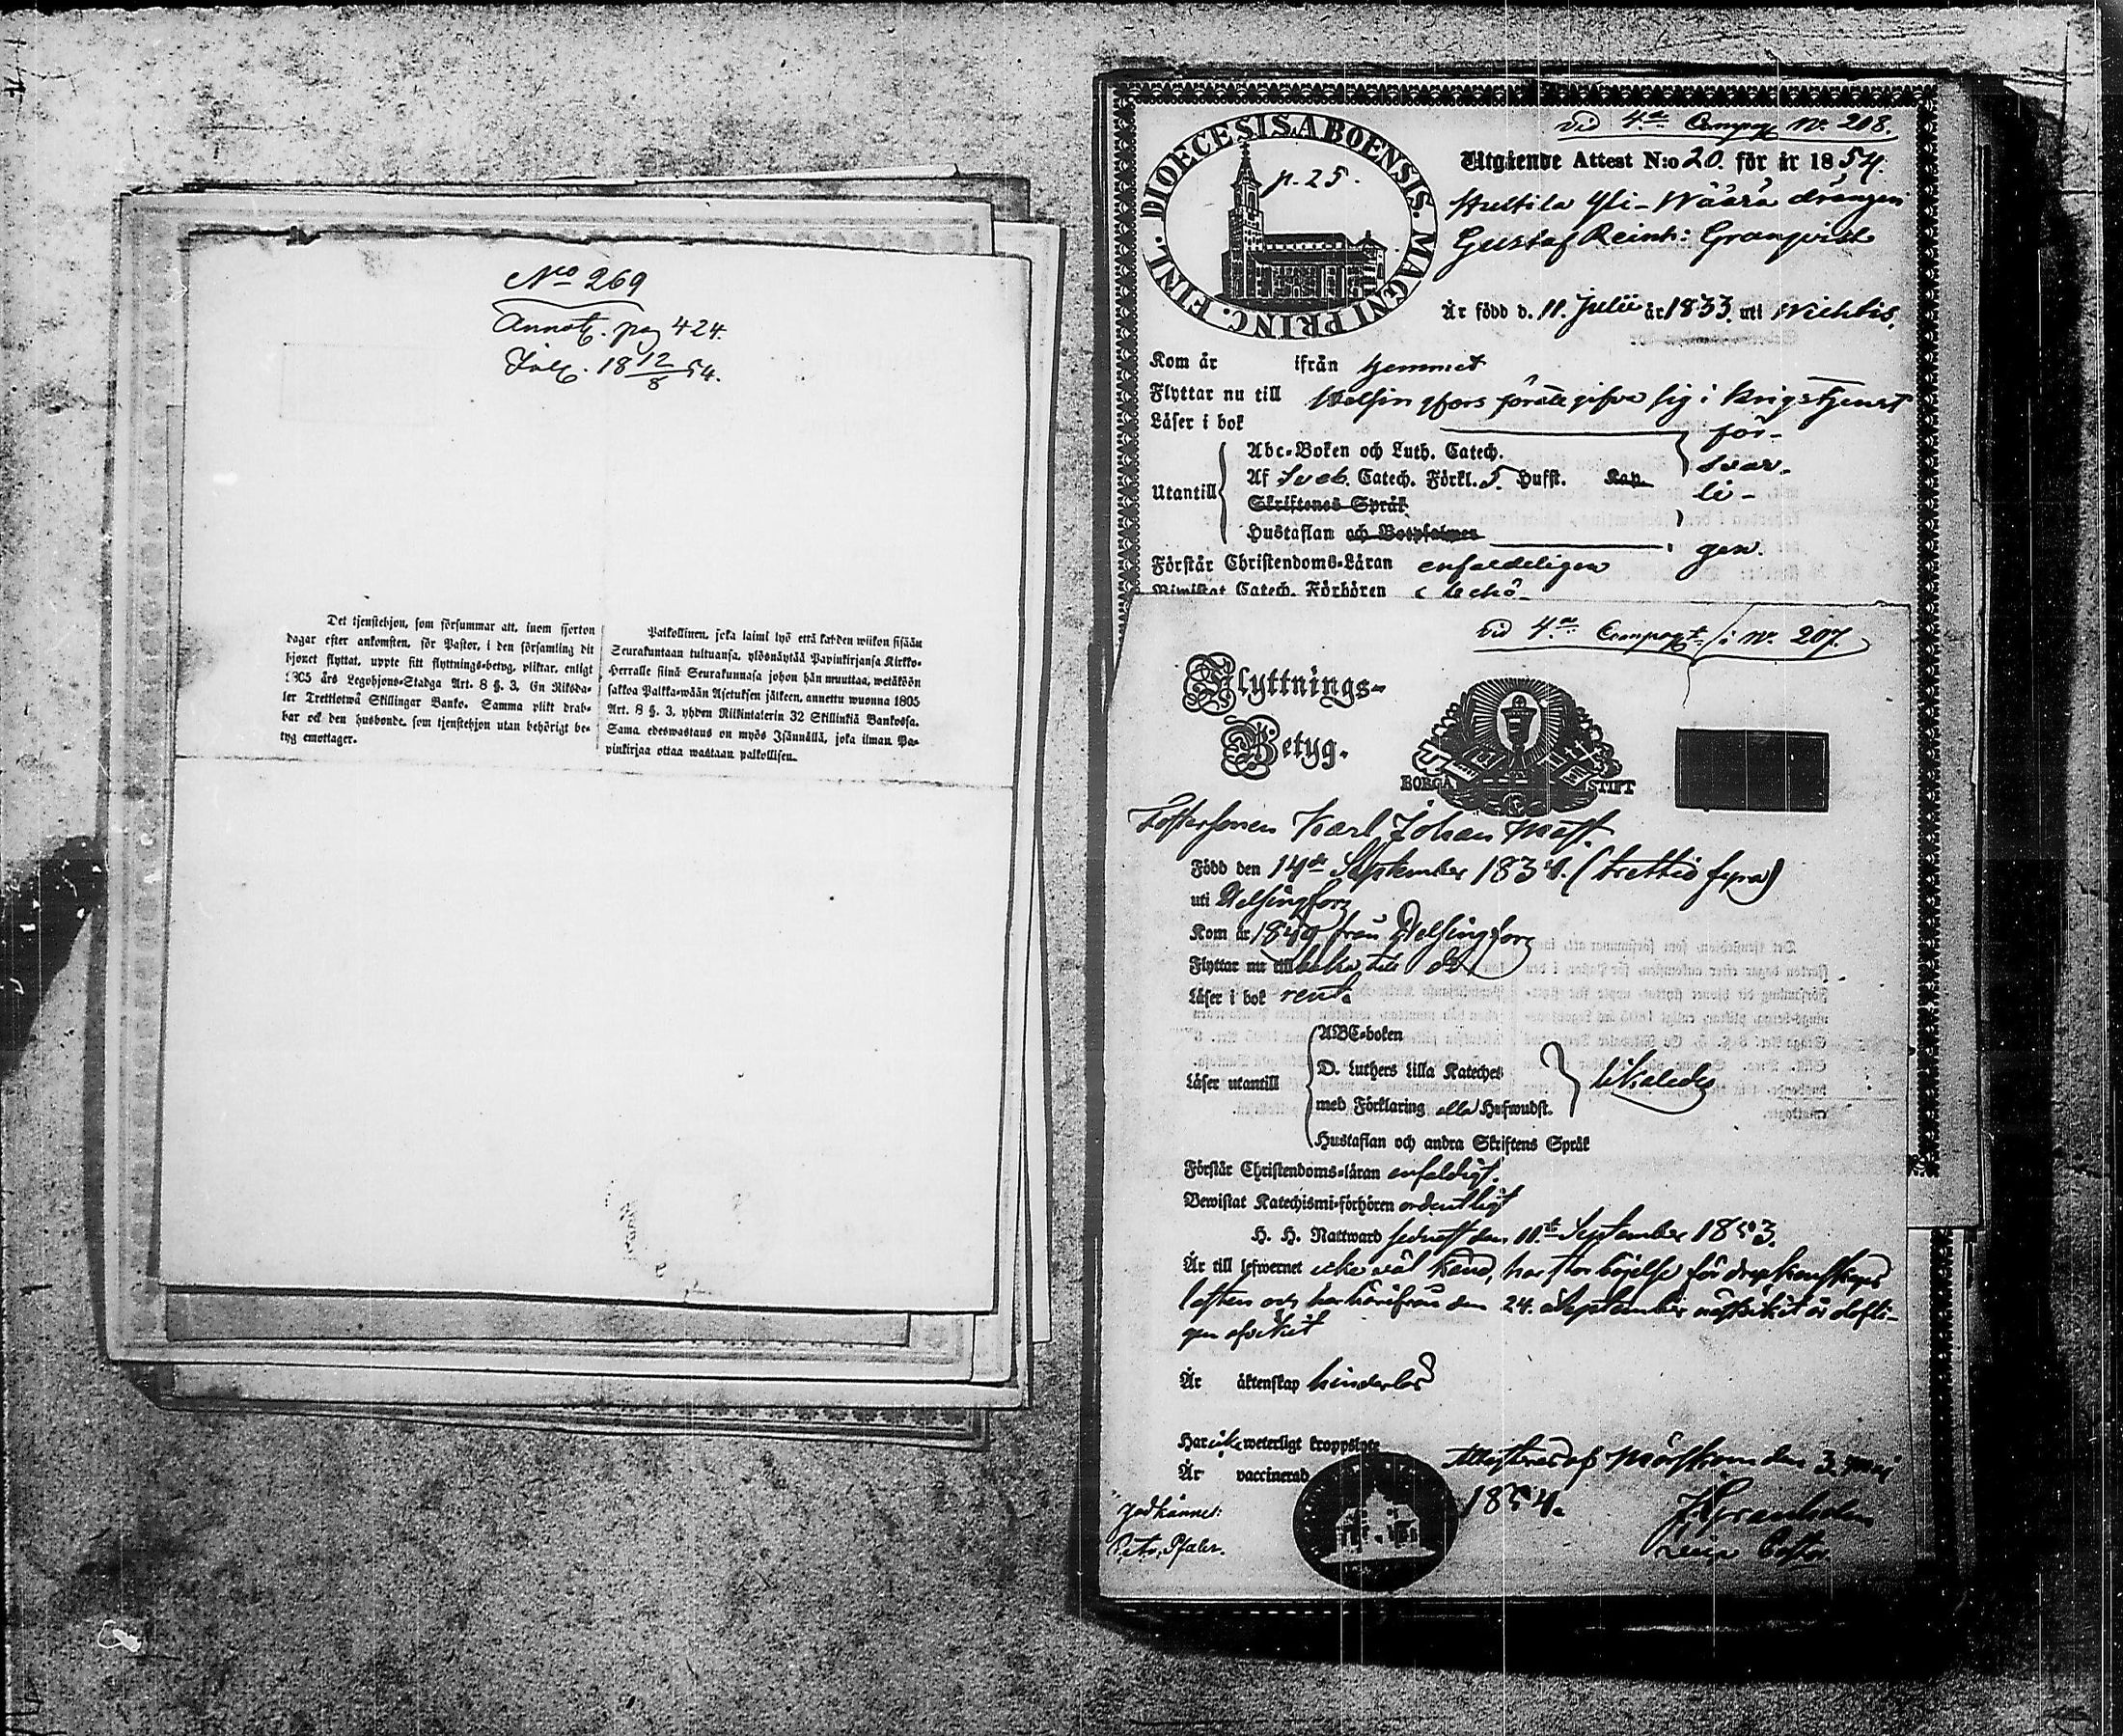 No 269
Annot. pag 424.
Inlt. 18 12/8 54.
Det tjenstehjon, som försummar att, inom fjorton
dagar efter ankomsten, för Pastor, i den församling dit
hjonet flyttat, uppte sitt flyttnings-betyg, pliktar, enligt
1805 års Legohjons-Stadga Art. 8 §. 3, En Riksda-
ler Trettiotwå Skillingar Banko. Samma plikt drab-
bar ock den husbonde, som tjenstehjon utan behörigt be-
tyg emottager.
Palkollinen, joka laimi lyö että kahden wiikon sisään
Seurakuntaan tultuansa, ylösnäytää Papinkirjansa Kirkko-
Herralle siinä Seurakunnasa johon hän muuttaa, wetäköön
sakkoa Palkka-wään Asetuksen jälkeen, annettu wuonna 1805
Art. 8 §. 3, yhden Riikintalerin 32 Skillinkiä Bankossa.
Sama edeswastaus on myös Isännällä, joka ilman Pa-
pinkirjaa ottaa wastaan palkollisen.
vid 4.a Compag. Nr. 208.
DIOECESIS ABOENSIS. MAGNI PRINC. FINL.
p. 25.
Utgående Attest N:o 20. för år 1854.
Yli-Wäärä drängen
Gustaf Reinh: Granqvist
Är född d. 11. Julii år 1833. uti Wichtis.
Kom år ifrån hemmet
Flyttar nu till Helsingfors för att gifva sig i krigstjenst
Läser i bok för-
Utantill
Abc-Boken och Luth. Catech. svar-
Af Sveb. Catech. Förkl. 5. Hufst. Kap. li-
Skriftenes Språk
Hustaflan och Botpsalmer gen.
Förstår Christendoms-Läran enfaldeligen
Biwistat Catech. Förhören
vid 4.a Compagt. Nr. 207.
Flyttnings-
Betyg.
BORGÅ STIFT
Fostersonen Karl Johan
Född den 14de September 1834. (trettio fyra)
uti Helsingfors
Kom år 1849 från Helsingfors
Flyttar nu tillbaka till do
Läser i bok rent.
Läser utantill
ABC-boken
D. Luthers Lilla Kateches
med Förklaring alla Hufwudst.
likaledes
Hustaflan och andra Skriftens Språk
Förstår Christendoms-läran enfaldigt.
Bewistat Katechismi-förhören ordentligt
H. H. Nattward sednast den 11.te September 1853.
Är till lefwernet icke väl känd, har stor böjelse för dryckenskaps
lasten och har härifrån den 24. September
Är äktenskap hinderlös
Har icke weterligt kroppslyte
Är vaccinerad
Attesteras af Mörskom den 3. Maj
1854.
Godkännes: